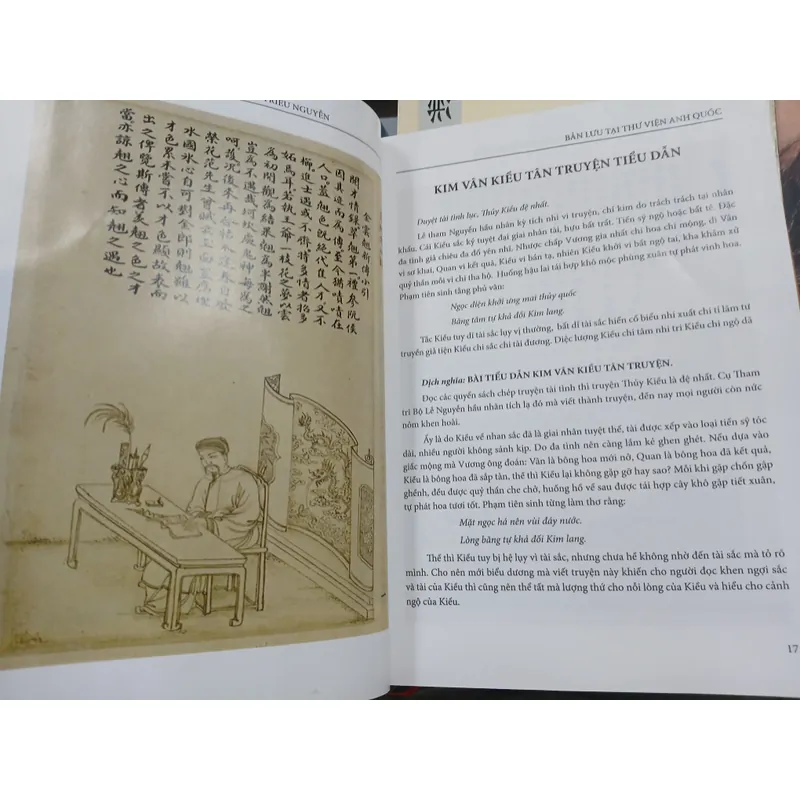 TRIỀU NGUYỄN
金雲翹新傳小引
閱才情錄翠翹第一禮參阮侯
因其迹而為傳至今猶嘖嘖在
人口蓋翹色既絕代隹人才又不
櫛進士遇或不儕猜多情者招多
妬焉耳若執王爺一枝花之夢以雲
為初開觀為結果翹為半謝然翹
豈為不遇哉坎坷處鬼神每為之
呵護況後來再合枯木逢春自發
榮花范先生曾賦云玉面豈應埋
水國氷心自可對金郎則翹雖以
才色累未嘗不以才色顯故表而
出之俾覽斯傳者羙翹之色之才
當亦諒翹之心而知翹之遇也
BẢN LƯU TẠI THƯ VIỆN ANH QUỐC
KIM VÂN KIỀU TÂN TRUYỆN TIỂU DẪN
Duyệt tài tình lục, Thúy Kiều đệ nhất.
Lễ tham Nguyễn hầu nhân kỳ tích nhi vi truyện, chí kim do trách trách tại nhân
khẩu. Cái Kiều sắc ký tuyệt đại giai nhân tài, hựu bất trất. Tiến sỹ ngộ hoặc bất tê. Đặc
đa tình giả chiêu đa đố yên nhĩ. Nhược chấp Vương gia nhất chi hoa chi mộng, dĩ Vân
vi sơ khai, Quan vi kết quả, Kiều vi bán tạ, nhiên Kiều khởi vi bất ngộ tai, kha khảm xứ
quỷ thần mỗi vi chi tha hộ. Huống hậu lai tái hợp khô mộc phùng xuân tự phát vinh hoa.
Phạm tiên sinh tăng phú vân:
Ngọc diện khởi ưng mai thủy quốc
Băng tâm tự khả đối Kim lang.
Tắc Kiều tuy dĩ tài sắc lụy vị thường, bất dĩ tài sắc hiển cố biểu nhi xuất chi tỉ lãm tư
truyện giả tiện Kiều chi sắc chi tài đương. Diệc lượng Kiều chi tâm nhi tri Kiều chi ngộ dã
Dịch nghĩa: BÀI TIỂU DẪN KIM VÂN KIỀU TÂN TRUYỆN.
Đọc các quyển sách chép truyện tài tình thì truyện Thúy Kiều là đệ nhất. Cụ Tham
tri Bộ Lễ Nguyễn hầu nhân tích lạ đó mà viết thành truyện, đến nay mọi người còn nức
nỏm khen hoài.
Ấy là do Kiều về nhan sắc đã là giai nhân tuyệt thế, tài được xếp vào loại tiến sỹ tóc
dài, nhiều người không sánh kịp. Do đa tình nên càng lắm kẻ ghen ghét. Nếu dựa vào
giấc mộng mà Vương ông đoán: Vân là bông hoa mới nở, Quan là bông hoa đã kết quả,
Kiều là bông hoa đã sắp tàn, thế thì Kiều lại không gặp gỡ hay sao? Mỗi khi gặp chốn gập
ghềnh, đều được quỷ thần che chở, huống hồ về sau được tái hợp cây khô gặp tiết xuân,
tự phát hoa tươi tốt. Phạm tiên sinh từng làm thơ rằng:
Mặt ngọc há nên vùi đáy nước.
Lòng băng tự khả đối Kim lang.
Thế thì Kiều tuy bị hệ lụy vì tài sắc, nhưng chưa hề không nhờ đến tài sắc mà tỏ rõ
mình. Cho nên mới biểu dương mà viết truyện này khiến cho người đọc khen ngợi sắc
và tài của Kiều thì cũng nên thể tất mà lượng thứ cho nỗi lòng của Kiều và hiểu cho cảnh
ngộ của Kiều.
17